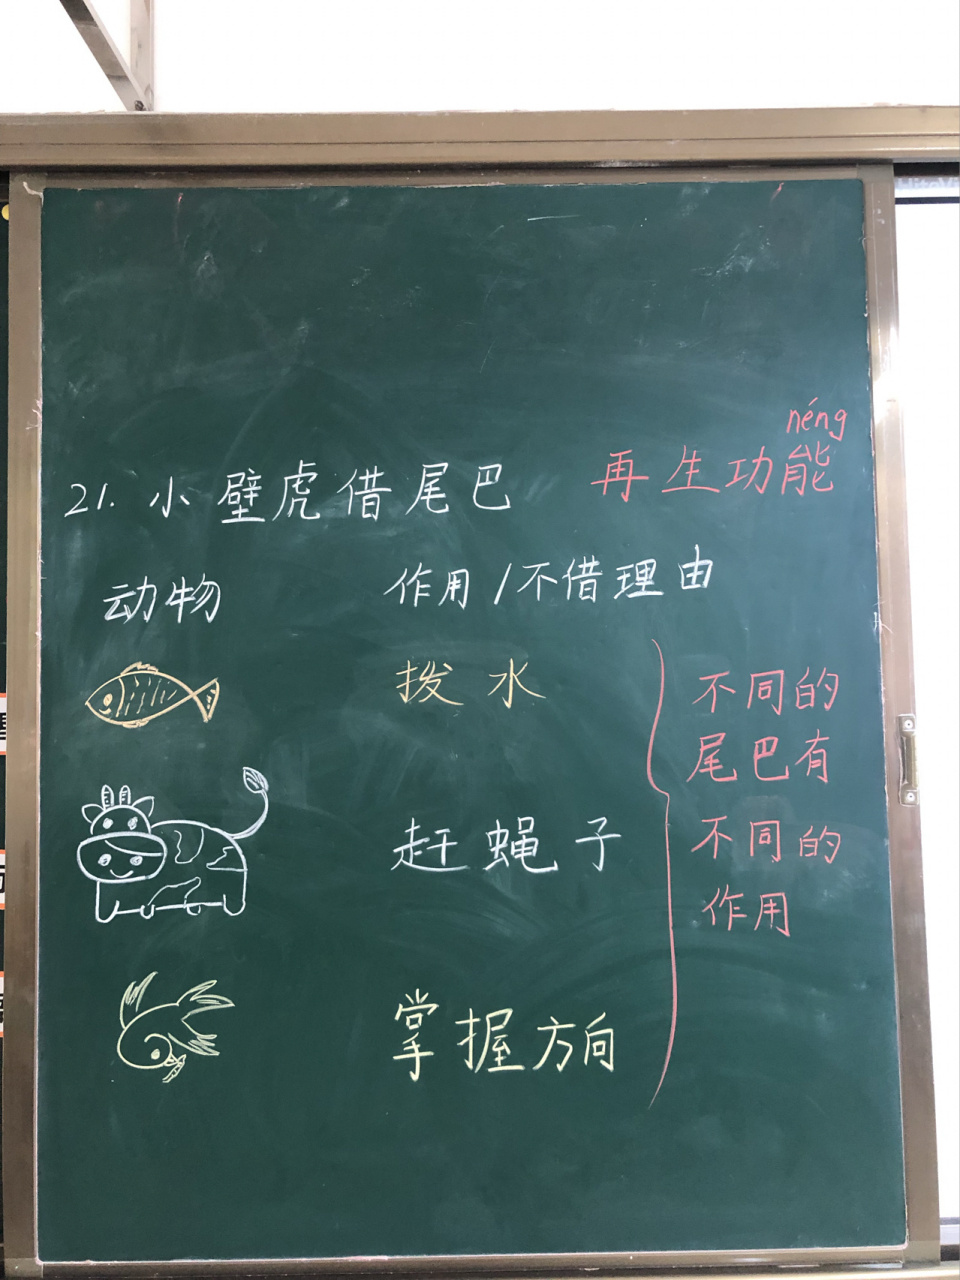 néng
21. 小壁虎借尾巴 再生功能
动物 作用/不借理由
拨水
赶蝇子
掌握方向
不同的
尾巴有
不同的
作用